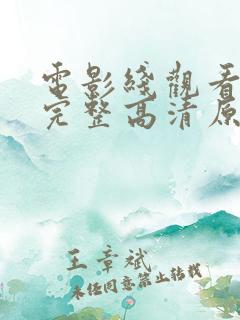 電影綫觀看
完整高清原
王章斌
未经同意禁止转载